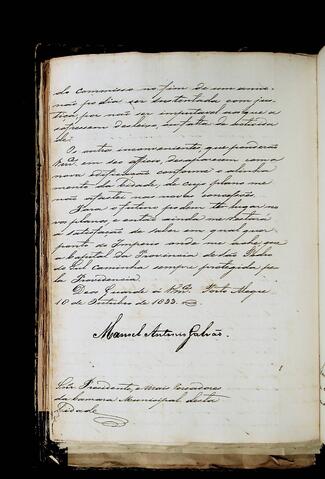 do commisso no fim de um anno
não podia ser sustentada com jus-
tiça, por não ser imputavel ao que a
espressem desleixo, ou falta de activida
de.
Os outros inconvenientes, que ponderão
em seo officio, desaparecem com a
nova edificação conforme o alinha-
mento da Cidade, de cujo plano me
não afastei nas novas concessões.
Para o futuro podem ter lugar no-
vos planos, e então ainda me restará
a satisfação de saber em qual quer
ponto do Imperio onde me ache, que
a Capital da Provincia de São Pedro
do Sul caminha sempre protegida pe-
la Providencia.
Deos Guarde a Porto Alegre
10 de Outubro de 1833.
Manoel Antonio Galvão.
Snr. Presidente, e mais Vereadores
da Camara Municipal desta
Cidade